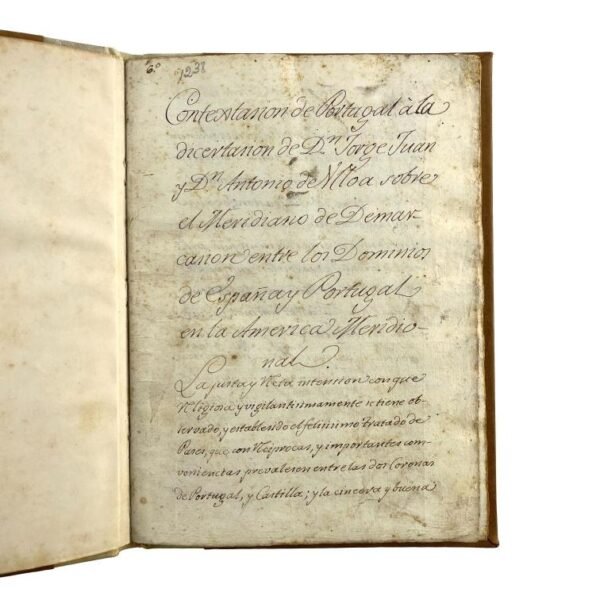 6.º
1231
Contextacion de Portugal à la
dicertacion de Dⁿ Jorge Juan
y Dⁿ Antonio de Vlloa sobre
el Meridiano de Demar-
cacion entre los Dominios
de España y Portugal
en la America Meridio-
nal.
La justa y recta intencion con que
religiosa y vigilantissimamente se tiene ob-
servado, y establecido el felissimo tratado de
Pases, que con reciprocas, y importantes com-
benienctas prevalecen entre las dos Coronas
de Portugal, y Castilla; y la cincera y buena